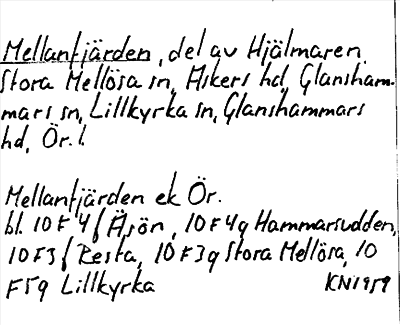 Mellanfjärden, del av Hjälmaren.
Stora Mellösa sn, Askers hd, Glansham-
mars sn, Lillkyrka sn, Glanshammars
hd, Ör. l.
Mellanfjärden ek Ör.
bl. 10 F 4 f Äsön, 10 F 4 g Hammarsudden,
10 F 3 f Resta, 10 F 3 g Stora Mellösa, 10
F 5 g Lillkyrka KN 1959